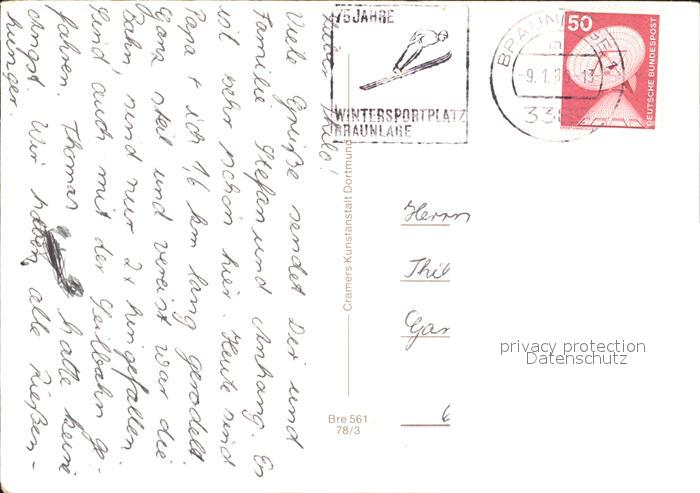 Lieber Thilo!
Viele Grüße sendet Dir und
Familie Stefan und Anhang. Es
ist sehr schön hier. Heute sind
Papa + ich 1,6 km lang gerodelt
Ganz steil und vereist war die
Bahn, sind nur 2x hingefallen.
Sind auch mit der Seilbahn ge-
fahren. Thomas hatte keine
Angst. Wir hatten alle Riesen-
hunger.
75 JAHRE
WINTERSPORTPLATZ
BRAUNLAGE
BRAUNLAGE 1
-9.1.8
338
50
DEUTSCHE BUNDESPOST
Cramers Kunstanstalt Dortmund
Bre 561
78/3
Herrn
Thil
Gar
privacy protection
Datenschutz